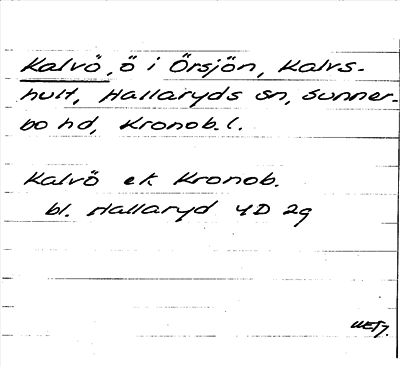 Kalvö, ö i Örsjön, Kalvs-
hult, Hallaryds sn, Sunner-
bo hd, Kronob. l.
Kalvö ek Kronob.
bl. Hallaryd 4D 2g